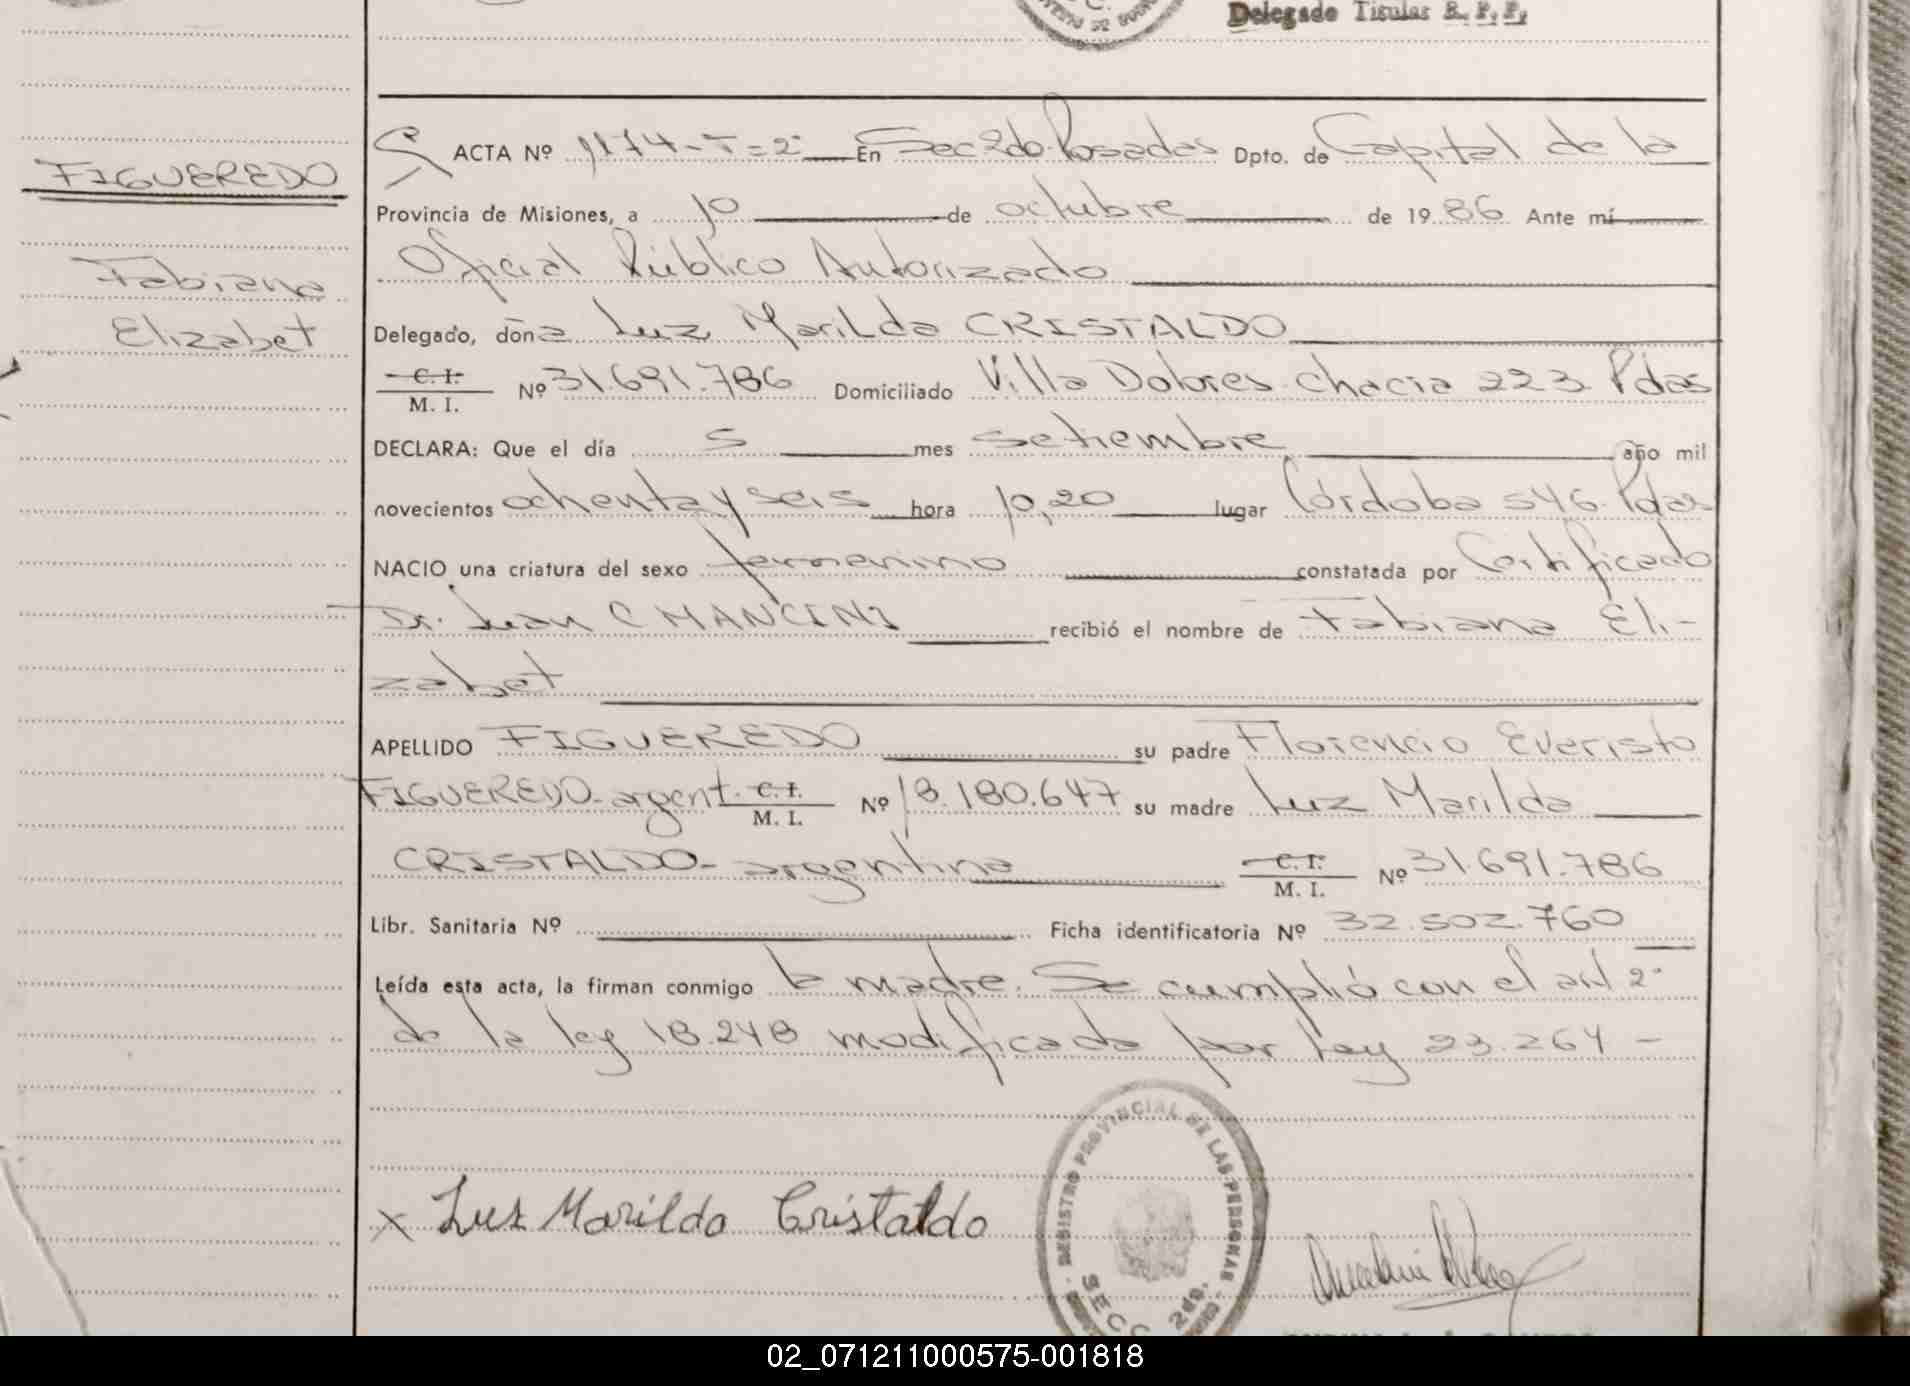 Delegado Titular R. P. P.
ACTA Nº 1174-T=2º En Sec 2da Posadas Dpto. de Capital de la
FIGUEREDO
Provincia de Misiones, a 10 de octubre de 1986 Ante mí
Oficial Público Autorizado
Fabiana
Elizabet
Delegado, doña Luz Marilda CRISTALDO
C. I.
M. I. Nº 31.691.786 Domiciliado Villa Dolores chacra 223 Pdas
DECLARA: Que el día 5 mes setiembre año mil
novecientos ochenta y seis hora 10,20 lugar Córdoba 546 Pdas
NACIO una criatura del sexo femenino constatada por Certificado
Dr. Juan C MANCINI recibió el nombre de Fabiana Eli-
zabet
APELLIDO FIGUEREDO su padre Florencio Everisto
FIGUEREDO-argent. C. I.
M. I. Nº 18.180.647 su madre Luz Marilda
CRISTALDO-argentina C. I.
M. I. Nº 31.691.786
Libr. Sanitaria Nº Ficha identificatoria Nº 32.502.760
Leída esta acta, la firman conmigo la madre. Se cumplió con el art 2º
de la ley 18.248 modificada por ley 23.264 -
REGISTRO PROVINCIAL DE LAS PERSONAS
SECC 2da.
x Luz Marilda Cristaldo
02_071211000575-001818